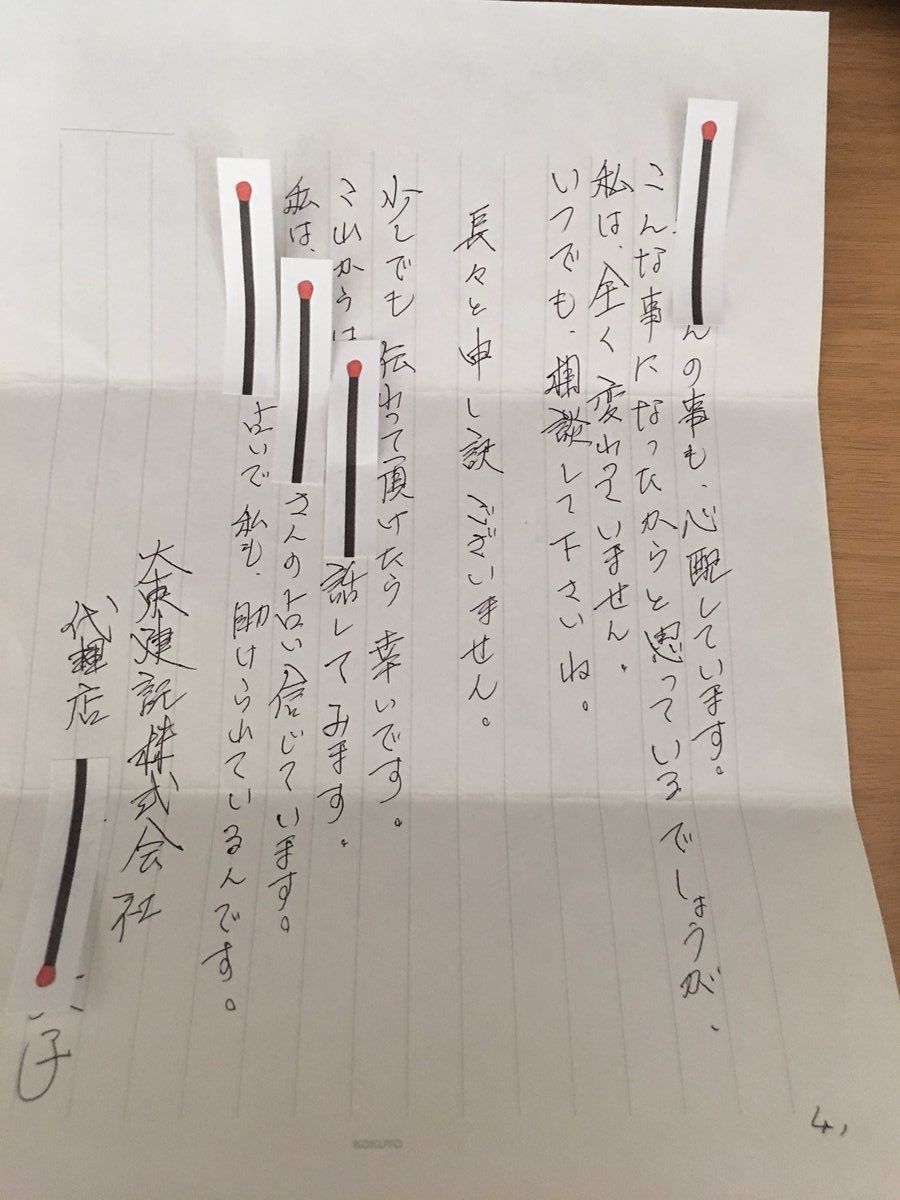 んの事も、心配しています。
こんな事になったからと思っているでしょうが、
私は、全く変わっていません。
いつでも、相談して下さいね。
長々と申し訳ございません。
少しでも伝わって頂けたら幸いです。
これからは 話してみます。
私は、 さんの占い信じています。
占いで私も、助けられているんです。
大東建託株式会社
代理店
子
4,
KOKUYO